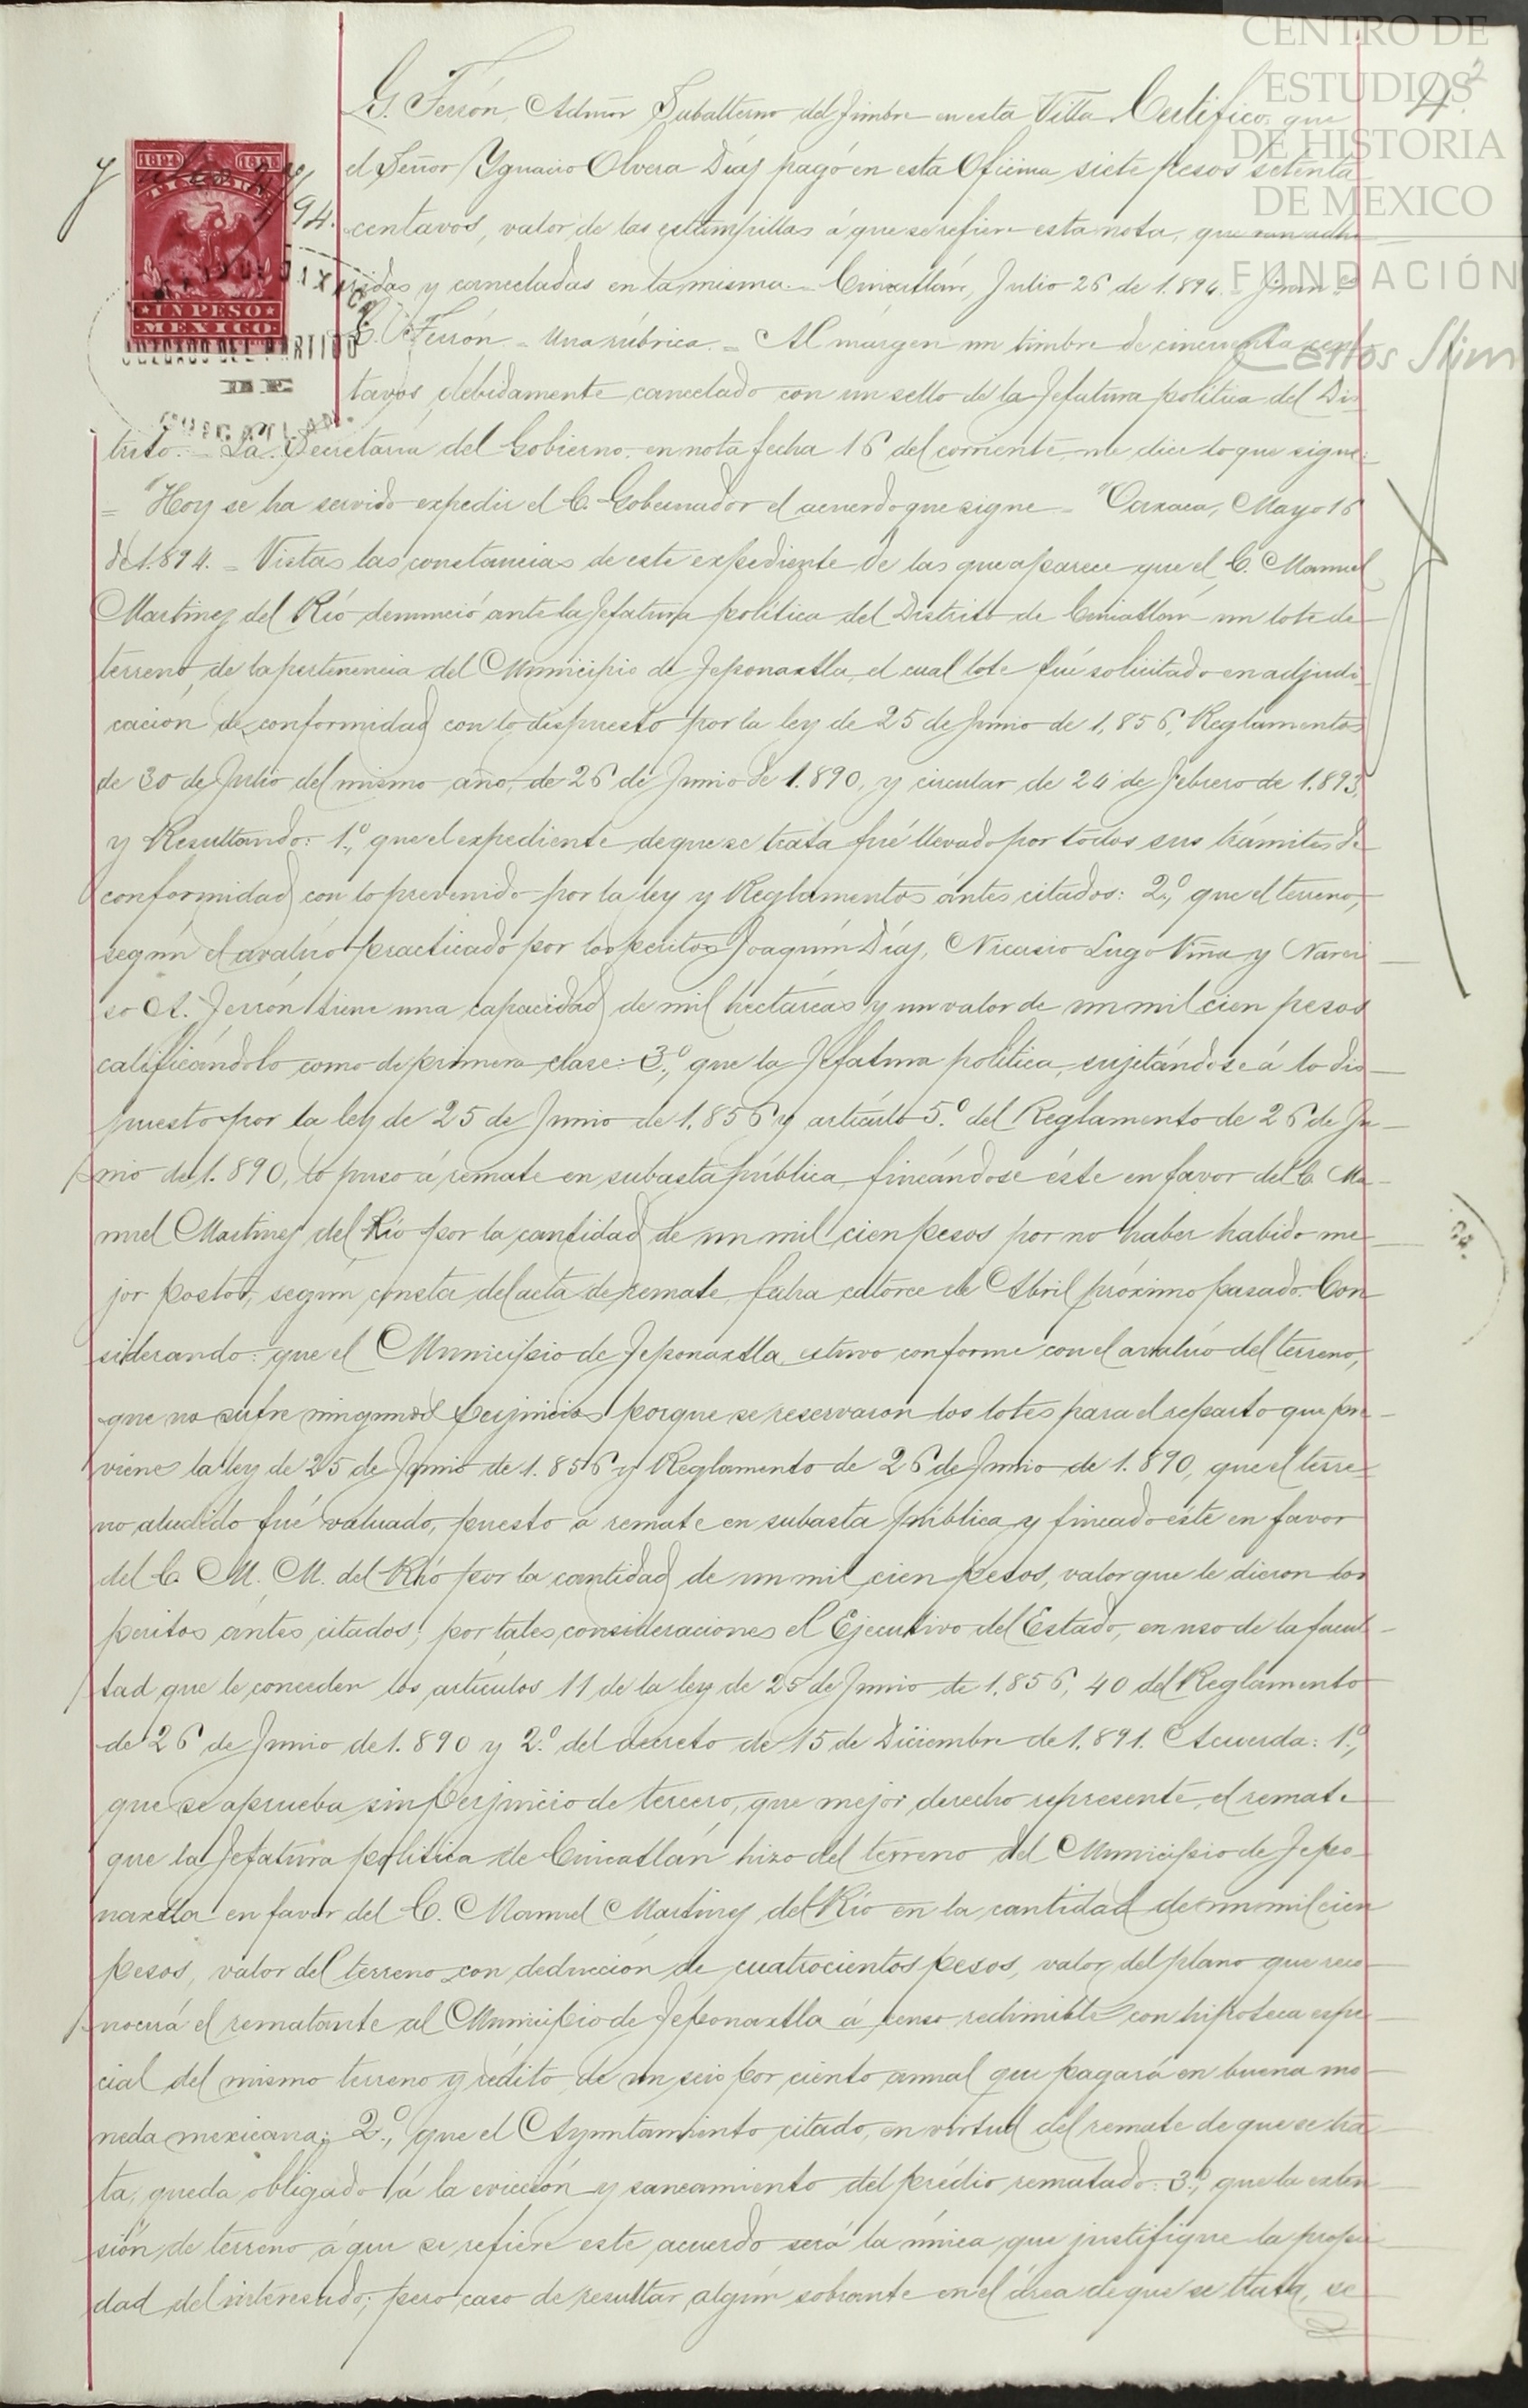 CENTRO DE
ESTUDIOS
DE HISTORIA
DE MEXICO
FUNDACIÓN
Carlos Slim
1894 1895
UN PESO
MEXICO
JUZGADO DEL PARTIDO
DE
G. Terrón, Admor Subalterno del Timbre en esta Villa Certifico: que
el Señor Ygnacio Olvera Díaz pagó en esta Oficina siete pesos setenta
centavos, valor de las estampillas á que se refiere esta nota, que van adhe
ridas y canceladas en la misma.= Cuicatlán, Julio 26 de 1.894.
Terrón = Una rúbrica.= Al márgen un timbre de cincuenta cen
tavos debidamente cancelado con un sello de la Jefatura política del Dis
trito.= La Secretaría del Gobierno en nota fecha 16 del corriente me dice lo que sigue:
= "Hoy se ha servido expedir el C. Gobernador el acuerdo que sigue = "Oaxaca, Mayo 16
de 1.894.= Vistas las constancias de este expediente de las que aparece que el C. Manuel
Martinez del Río denunció ante la Jefatura política del Distrito de Cuicatlán un lote de
terreno, de la pertenencia del Municipio de Teponaxtla, el cual lote fué solicitado en adjudi
cación de conformidad con lo dispuesto por la ley de 25 de Junio de 1,856, Reglamentos
de 30 de Julio del mismo año, de 26 de Junio de 1.890, y circular de 24 de Febrero de 1.893,
y Resultando: 1.º, que el expediente de que se trata fué llevado por todos sus trámites de
conformidad con lo prevenido por la ley y Reglamentos ántes citados: 2.º, que el terreno,
según el avalúo practicado por los peritos Joaquín Díaz, Nicasio Lugo Viña y Narci
so A. Terrón tiene una capacidad de mil hectáreas y un valor de un mil cien pesos
calificándolo como de primera clase: 3.º, que la Jefatura política, sujetándose á lo dis
puesto por la ley de 25 de Junio de 1.856 y artículo 5.º del Reglamento de 26 de Ju
nio de 1.890, lo puso á remate en subasta pública, fincándose éste en favor del C. Ma
nuel Martinez del Río por la cantidad de un mil cien pesos por no haber habido me
jor postor, según consta del acta de remate, fecha catorce de Abril próximo pasado. Con
siderando: que el Municipio de Teponaxtla estuvo conforme con el avalúo del terreno,
que no sufre perjuicios porque se reservaron los lotes para el reparto que pre
viene la ley de 25 de Junio de 1.856 y Reglamento de 26 de Junio de 1.890, que el terre
no aludido fué valuado, puesto á remate en subasta pública y fincado éste en favor
del C. M. M. del Río por la cantidad de un mil cien pesos, valor que le dieron los
peritos ántes citados; por tales consideraciones el Ejecutivo del Estado, en uso de la facul
tad que le conceden los artículos 11 de la ley de 25 de Junio de 1.856, 40 del Reglamento
de 26 de Junio de 1.890 y 2.º del decreto de 15 de Diciembre de 1.891. Acuerda: 1.º,
que se aprueba sin perjuicio de tercero, que mejor derecho represente, el remate
que la Jefatura política de Cuicatlán hizo del terreno del Municipio de Tepo
naxtla en favor del C. Manuel Martinez del Río en la cantidad de un mil cien
pesos, valor del terreno con deducción de cuatrocientos pesos, valor del plano que reco
nocerá el rematante al Municipio de Teponaxtla á censo redimible con hipoteca espe
cial del mismo terreno y rédito de un seis por ciento anual que pagará en buena mo
neda mexicana; 2.º, que el Ayuntamiento citado, en virtud del remate de que se tra
ta, queda obligado á la evicción y saneamiento del prédio rematado: 3.º, que la exten
sión de terreno á que se refiere este acuerdo será la única que justifique la propie
dad del interesado; pero caso de resultar algún sobrante en el área de que se trata, se